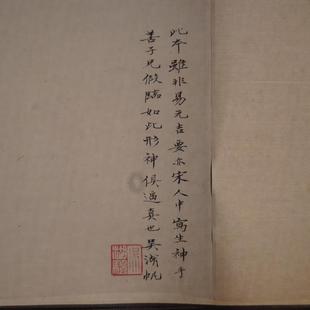 此本雖非易元吉要亦宋人中寫生神手
善子兄假臨如此形神俱逼真也吴湖帆